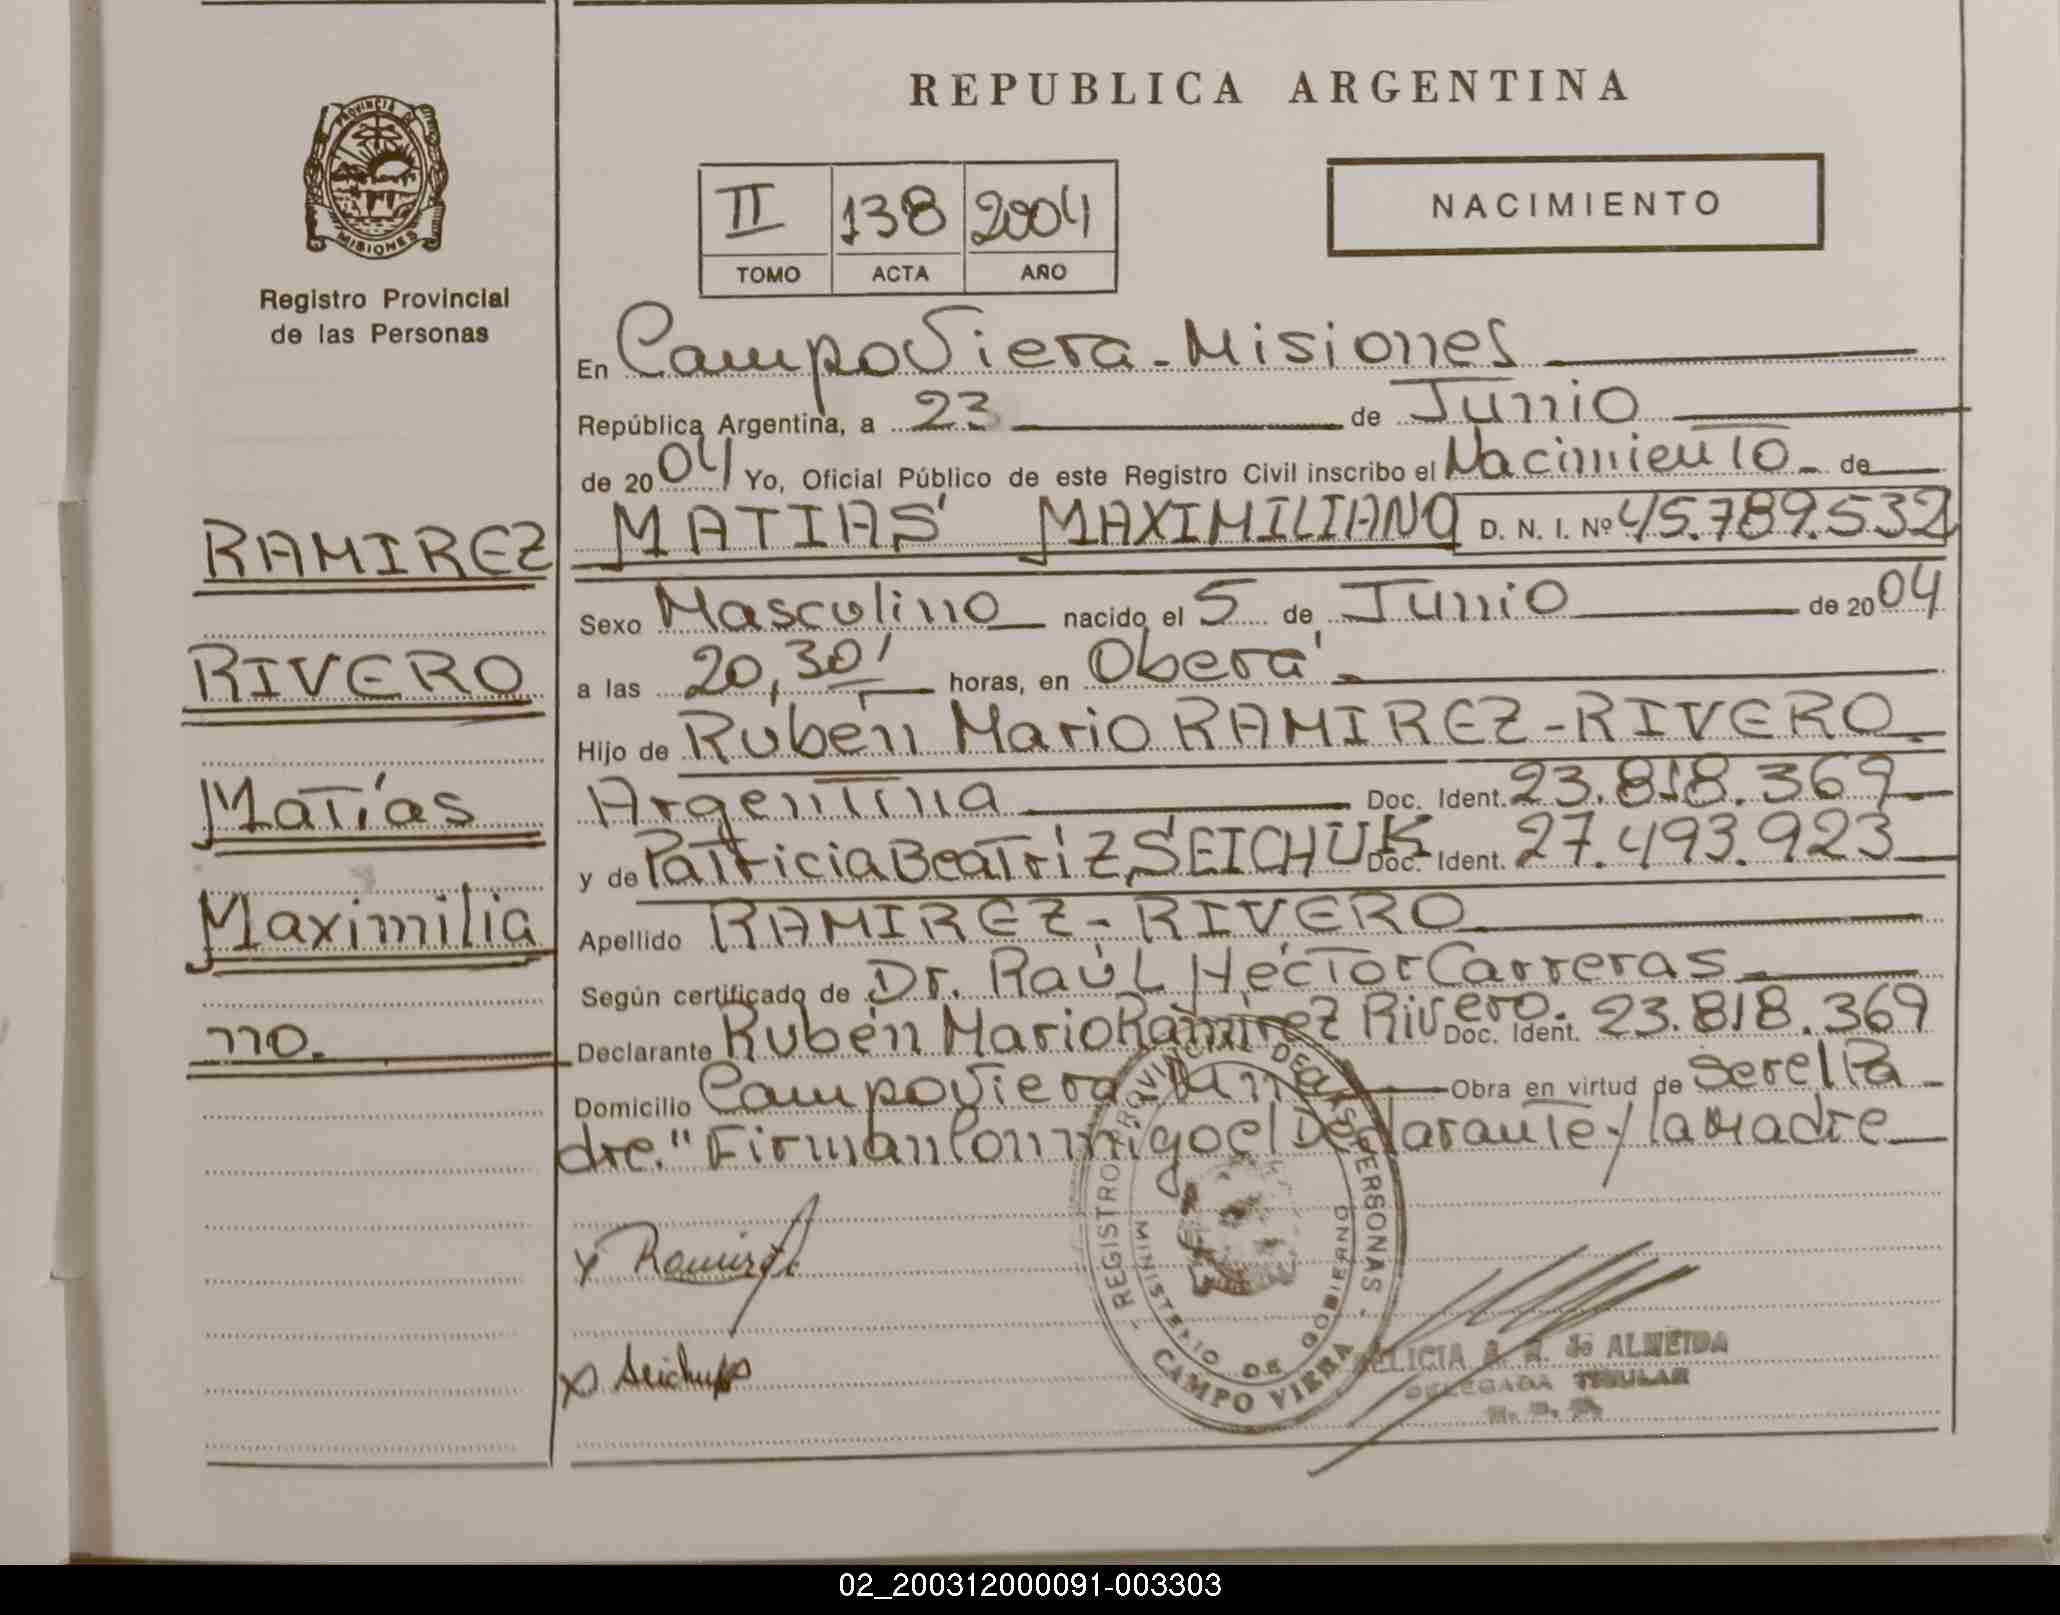 PROVINCIA DE
MISIONES
Registro Provincial
de las Personas
REPUBLICA ARGENTINA
II 138 2004
TOMO ACTA AÑO
NACIMIENTO
En Campo Viera - Misiones
República Argentina, a 23 de Junio
de 2004 Yo, Oficial Público de este Registro Civil inscribo el Nacimiento de
MATIAS MAXIMILIANO D. N. I. Nº 45.789.532
Sexo Masculino nacido el 5 de Junio de 2004
a las 20,30' horas, en Oberá
Hijo de Rubén Mario RAMIREZ-RIVERO
Argentina Doc. Ident. 23.818.369
y de Patricia Beatriz SEICHUK Doc. Ident. 27.493.923
Apellido RAMIREZ - RIVERO
Según certificado de Dr. Raúl Héctor Carreras
Declarante Rubén Mario Ramirez Rivero. Doc. Ident. 23.818.369
Domicilio Campo Viera Mnes Obra en virtud de Ser el Pa
dre." Firman conmigo el Declarante y la Madre
RAMIREZ
RIVERO
Matías
Maximilia
no.
x Ramirez
x Seichuk
- REGISTRO PROVINCIAL DE LAS PERSONAS -
MINISTERIO DE GOBIERNO
CAMPO VIERA
de ALMEIDA
DELEGADA TITULAR
02_200312000091-003303